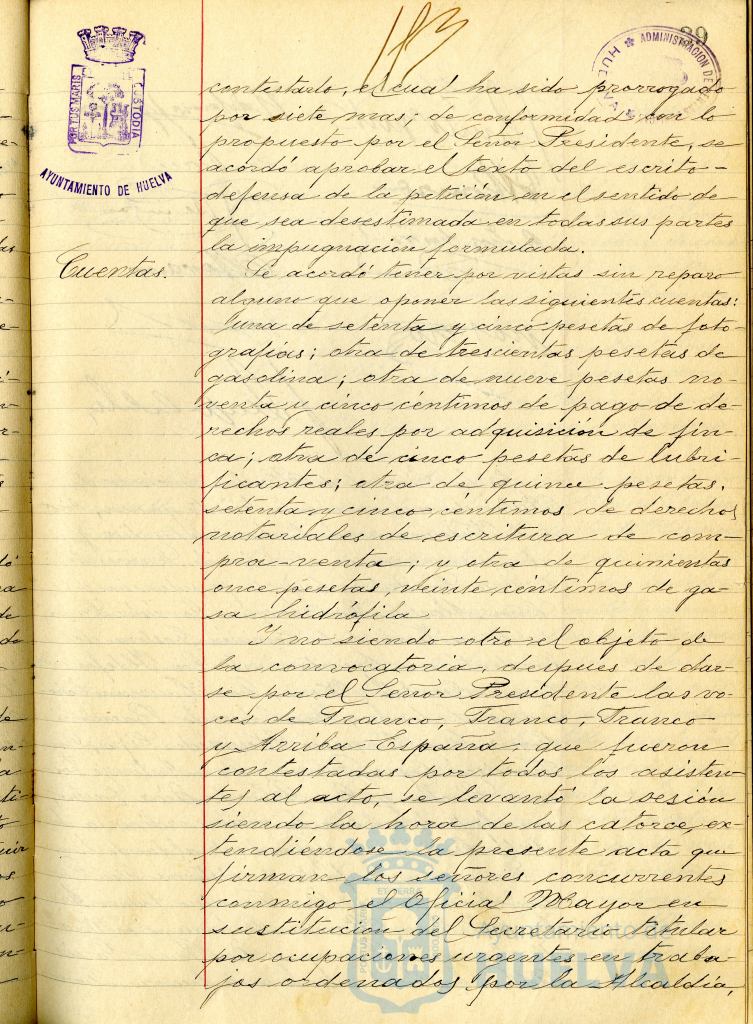 183
39
ADMINISTRACION DE
HUELVA
PORTUS MARIS
CUSTODIA
AYUNTAMIENTO DE HUELVA
contestarlo, el cual ha sido prorrogado
por siete mas; de conformidad con lo
propuesto por el Señor Presidente, se
acordó aprobar el texto del escrito-
defensa de la petición en el sentido de
que sea desestimada en todas sus partes
la impugnación formulada.
Cuentas.
Se acordó tener por vistas sin reparo
alguno que oponer las siguientes cuentas:
una de setenta y cinco pesetas de foto-
grafías; otra de trescientas pesetas de
gasolina; otra de nueve pesetas no-
venta y cinco céntimos de pago de de-
rechos reales por adquisición de fin-
ca; otra de cinco pesetas de lubri-
ficantes; otra de quince pesetas,
setenta y cinco céntimos de derechos
notariales de escritura de com-
pra-venta; y otra de quinientas
once pesetas, veinte céntimos de ga-
sa hidrófila
Y no siendo otro el objeto de
la convocatoria, despues de dar-
se por el Señor Presidente las vo-
ces de Franco, Franco, Franco
y Arriba España, que fueron
contestadas por todos los asisten-
tes al acto, se levantó la sesión
siendo la hora de las catorce, ex-
tendiéndose la presente acta que
firman los señores concurrentes
conmigo el Oficial Mayor en
sustitución del Secretario titular
por ocupaciones urgentes en traba-
jos ordenados por la Alcaldía,
Ayuntamiento de
HUELVA